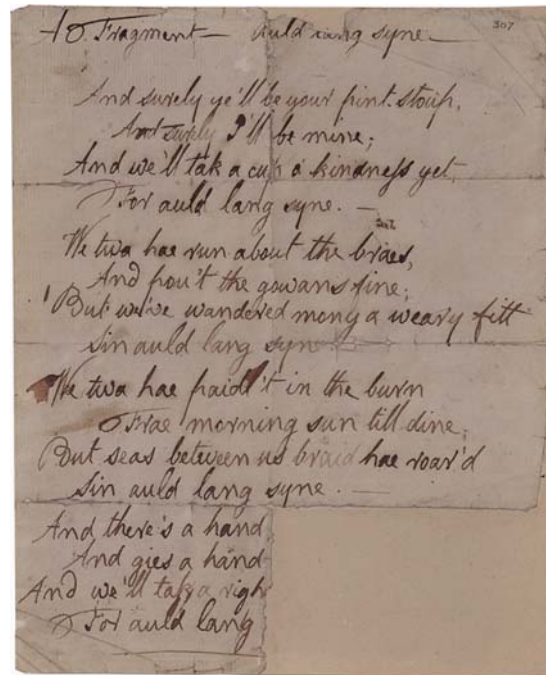 10. Fragment — auld lang syne — 307
And surely ye'll be your pint-stoup,
And surely I'll be mine;
And we'll tak a cup o' kindness yet,
For auld lang syne. —
We twa hae run about the braes,
And pou't the gowans fine;
But we've wandered mony a weary fitt
Sin auld lang syne
We twa hae paidl't in the burn
Frae morning sun till dine;
But seas between us braid hae roar'd
Sin auld lang syne. —
And there's a hand
And gies a hand
And we'll tak a righ
For auld lang